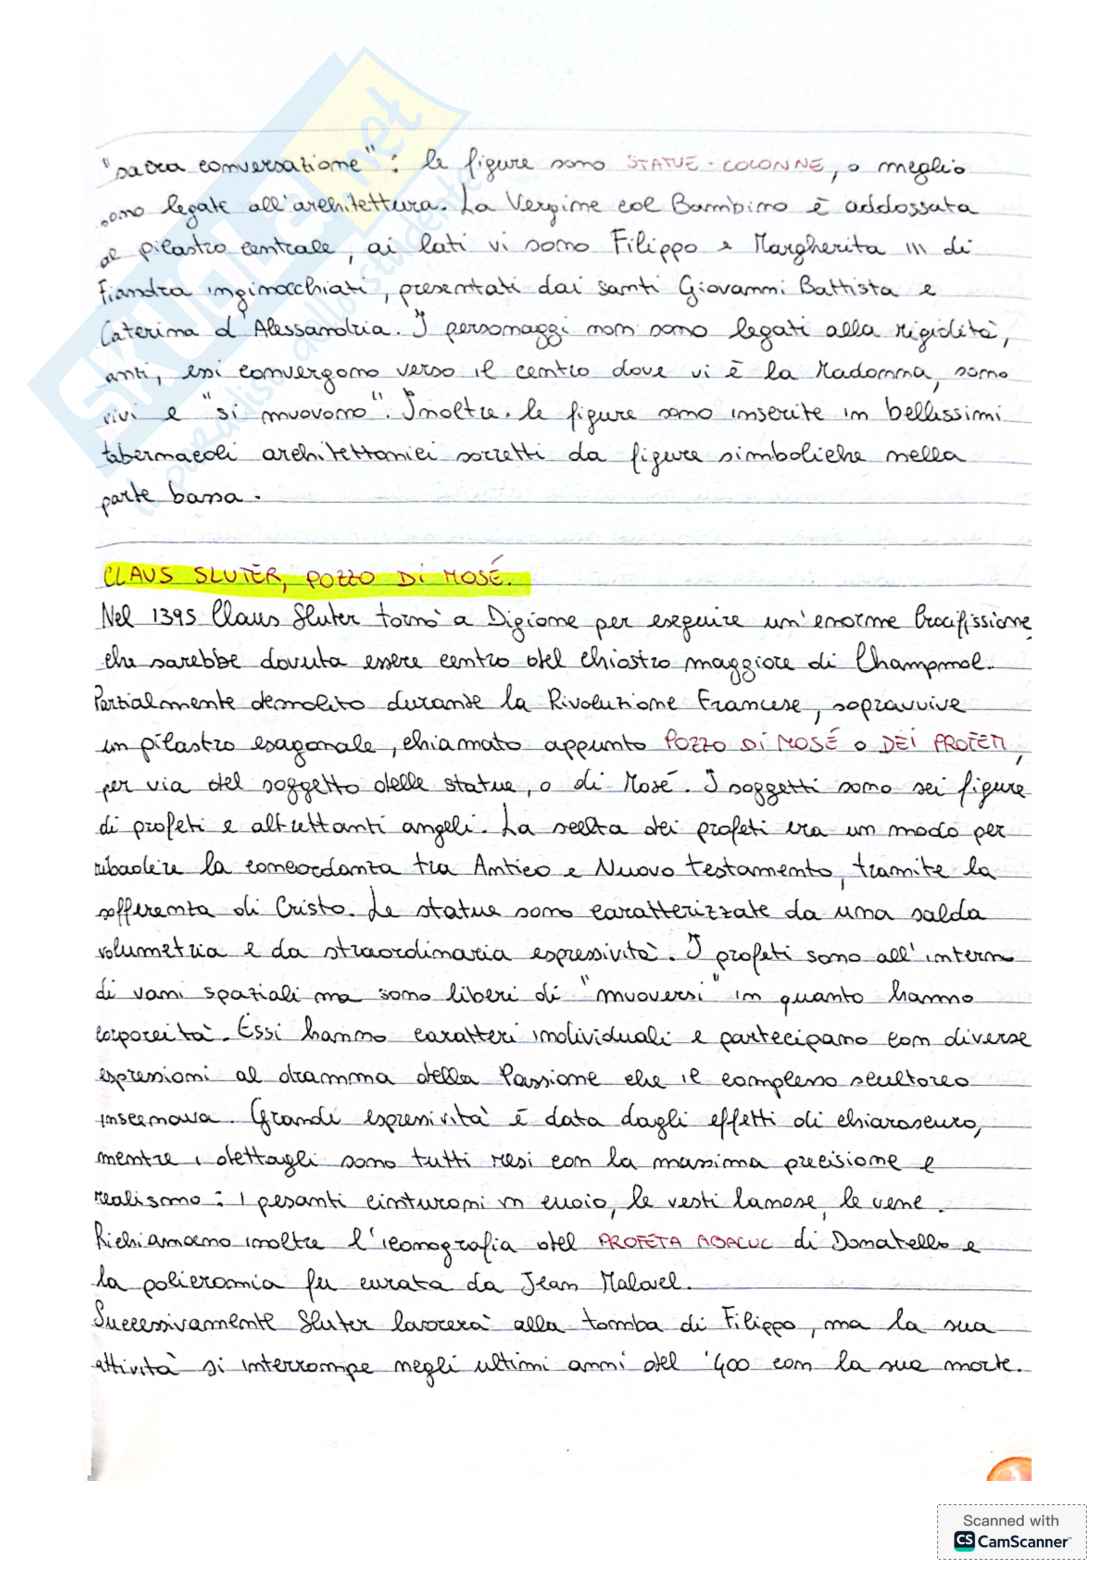 "sacra conversazione": le figure sono STATUE-COLONNE, o meglio
sono legate all'architettura. La Vergine col Bambino è addossata
al pilastro centrale, ai lati vi sono Filippo e Margherita III di
Fiandra inginocchiati, presentati dai santi Giovanni Battista e
Caterina d'Alessandria. I personaggi non sono legati alla rigidità,
anzi, essi convergono verso il centro dove vi è la Madonna, sono
vivi e "si muovono". Inoltre le figure sono inserite in bellissimi
tabernacoli architettonici sorretti da figure simboliche nella
parte bassa.
CLAUS SLUTER, POZZO DI MOSÉ.
Nel 1395 Claus Sluter tornò a Digione per eseguire un'enorme Crocifissione
che sarebbe dovuta essere centro del chiostro maggiore di Champmol.
Parzialmente demolito durante la Rivoluzione Francese, sopravvive
un pilastro esagonale, chiamato appunto POZZO DI MOSÉ o DEI PROFETI,
per via del soggetto delle statue, o di Mosé. I soggetti sono sei figure
di profeti e altrettanti angeli. La scelta dei profeti era un modo per
ribadire la concordanza tra Antico e Nuovo testamento, tramite la
sofferenza di Cristo. Le statue sono caratterizzate da una salda
volumetria e da straordinaria espressività. I profeti sono all'interno
di vani spaziali ma sono liberi di "muoversi" in quanto hanno
corporeità. Essi hanno caratteri individuali e partecipano con diverse
espressioni al dramma della Passione che il complesso scultoreo
inscenava. Grande espressività è data dagli effetti di chiaroscuro,
mentre i dettagli sono tutti resi con la massima precisione e
realismo: i pesanti cinturoni in cuoio, le vesti lanose, le vene.
Richiamano inoltre l'iconografia del PROFETA ABACUC di Donatello e
la policromia fu curata da Jean Malouel.
Successivamente Sluter lavorerà alla tomba di Filippo, ma la sua
attività si interrompe negli ultimi anni del '400 con la sua morte.
SKUOLA.net
Scanned with
CS CamScanner